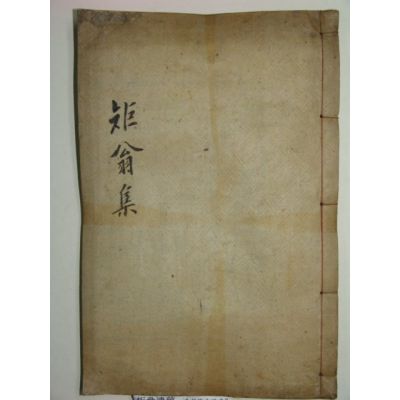 矩翁集